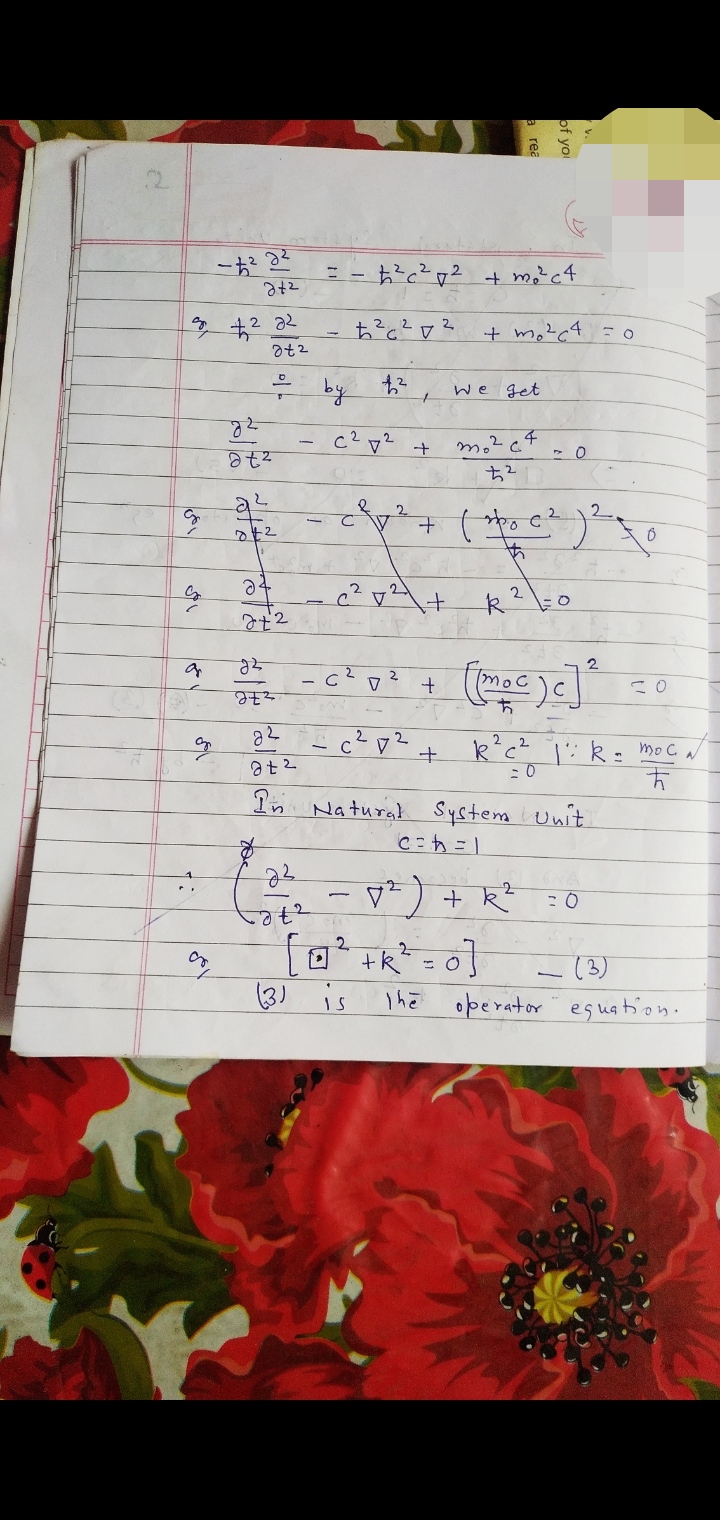 2
of you
a rea
-ℏ² ∂²/∂t² = - ℏ²c²∇² + m₀²c⁴
or, ℏ² ∂²/∂t² - ℏ²c²∇² + m₀²c⁴ = 0
÷ by ℏ², we get
∂²/∂t² - c²∇² + m₀²c⁴/ℏ² = 0
or, ∂²/∂t² - c²∇² + (m₀c²/ℏ)² = 0
or, ∂²/∂t² - c²∇² + k² = 0
or, ∂²/∂t² - c²∇² + [(m₀c/ℏ)c]² = 0
or, ∂²/∂t² - c²∇² + k²c² = 0 |∵ k = m₀c/ℏ
In Natural System Unit
c = ℏ = 1
∴ (∂²/∂t² - ∇²) + k² = 0
or, [□² + k² = 0] — (3)
(3) is the operator equation.